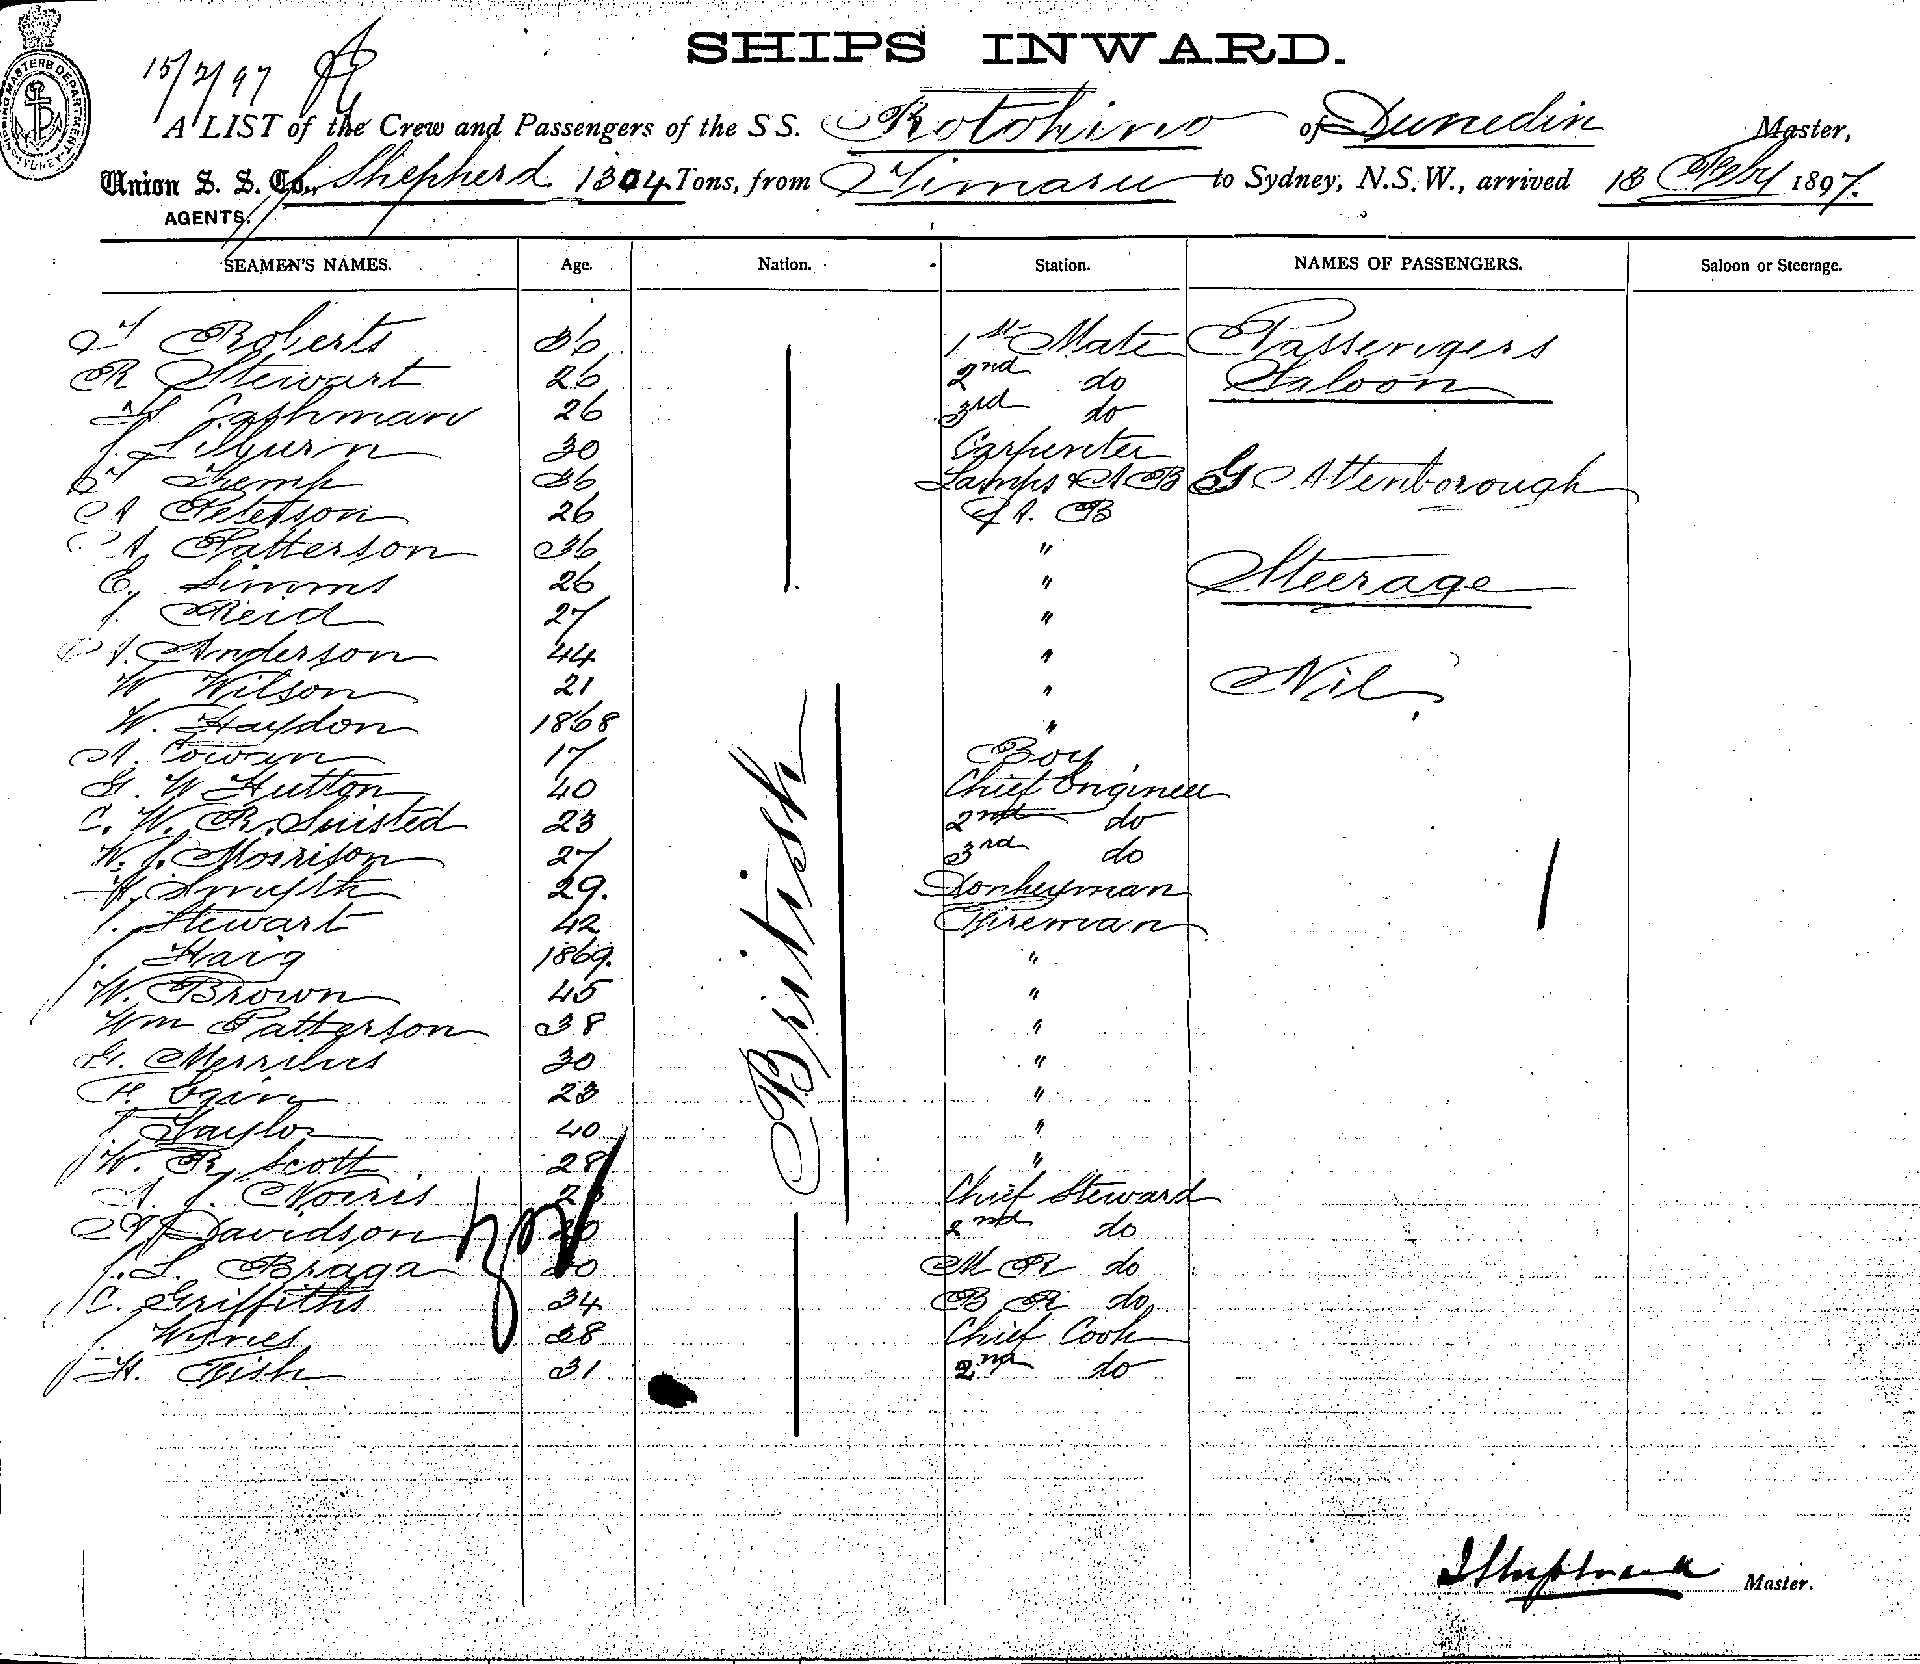 SHIPS INWARD.
15/2/97
A LIST of the Crew and Passengers of the S S. Rotokino of Dunedin Master,
Union S. S. Co., J Shepherd 1304 Tons, from Timaru to Sydney, N.S.W., arrived 13 Feby 1897.
AGENTS.
SEAMEN'S NAMES. Age. Nation. Station. NAMES OF PASSENGERS. Saloon or Steerage.
T Roberts 36 1st Mate Passengers
R Stewart 26 2nd do Saloon
Cashman 26 3rd do
J. Lilburn 30 Carpenter
Kemp 36 Lamps & A B G Attenborough
A Peterson 26 A. B
A Patterson 36 "
E. Simms 26 " Steerage
J. Reid 27 "
A. Anderson 44 "
W Wilson 21 " Nil
W. Haydon 1868 "
A. Cowan 17 Boy
G. W Hutton 40 Chief Engineer
C. W. R. Suisted 23 2nd do
W. J. Morrison 27 3rd do
A. Smyth 29. Donkeyman
J. Stewart 42 Fireman
J. Haig 1869. "
W. Brown 45 "
Wm Patterson 38 "
G. Merrilies 30 "
F. Egan 23 "
J. Taylor 40 "
W. R. Scott 28 "
A. J. Norris Chief Steward
Davidson 2nd do
J. L. Braga M R do
C. Griffiths 34 B R do
J. Wynes 28 Chief Cook
H. Fish 31 2nd do
British
J Shepherd Master.